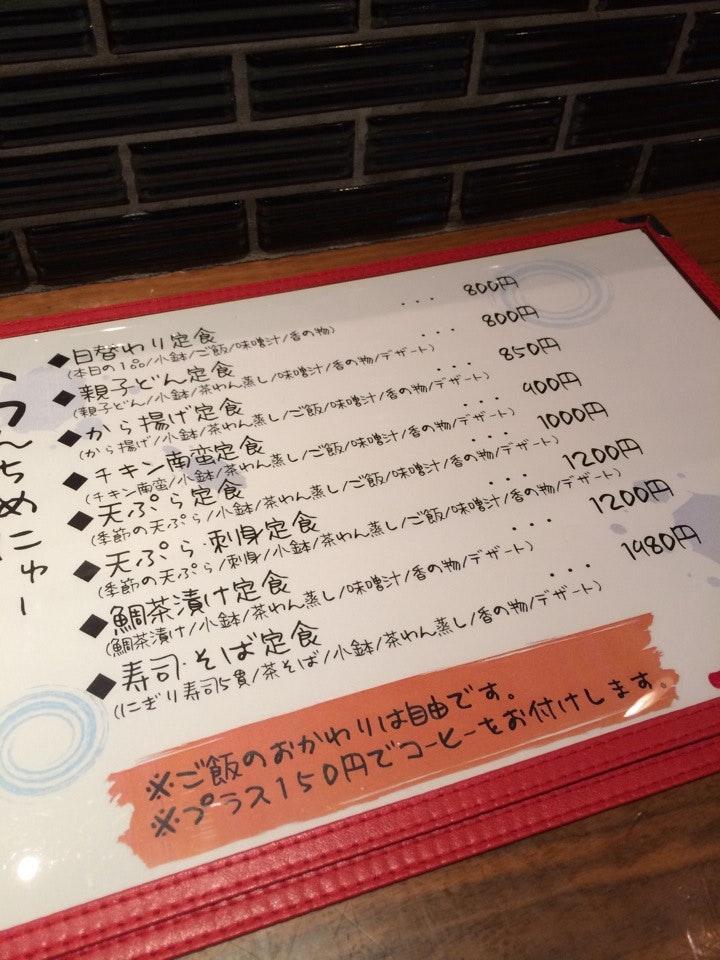 らんちめにゅー
◆日替わり定食 ・・・ 800円
(本日の1品/小鉢/ご飯/味噌汁/香の物)
◆親子どん定食 ・・・ 800円
(親子どん/小鉢/茶わん蒸し/味噌汁/香の物/デザート)
◆から揚げ定食 ・・・ 850円
(から揚げ/小鉢/茶わん蒸し/ご飯/味噌汁/香の物/デザート)
◆チキン南蛮定食 ・・・ 900円
(チキン南蛮/小鉢/茶わん蒸し/ご飯/味噌汁/香の物/デザート)
◆天ぷら定食 ・・・ 1000円
(季節の天ぷら/小鉢/茶わん蒸し/ご飯/味噌汁/香の物/デザート)
◆天ぷら・刺身定食 ・・・ 1200円
(季節の天ぷら/刺身/小鉢/茶わん蒸し/ご飯/味噌汁/香の物/デザート)
◆鯛茶漬け定食 ・・・ 1200円
(鯛茶漬け/小鉢/茶わん蒸し/味噌汁/香の物/デザート)
◆寿司・そば定食 ・・・ 1980円
(にぎり寿司5貫/茶そば/小鉢/茶わん蒸し/香の物/デザート)
※ご飯のおかわりは自由です。
※プラス150円でコーヒーをお付けします。